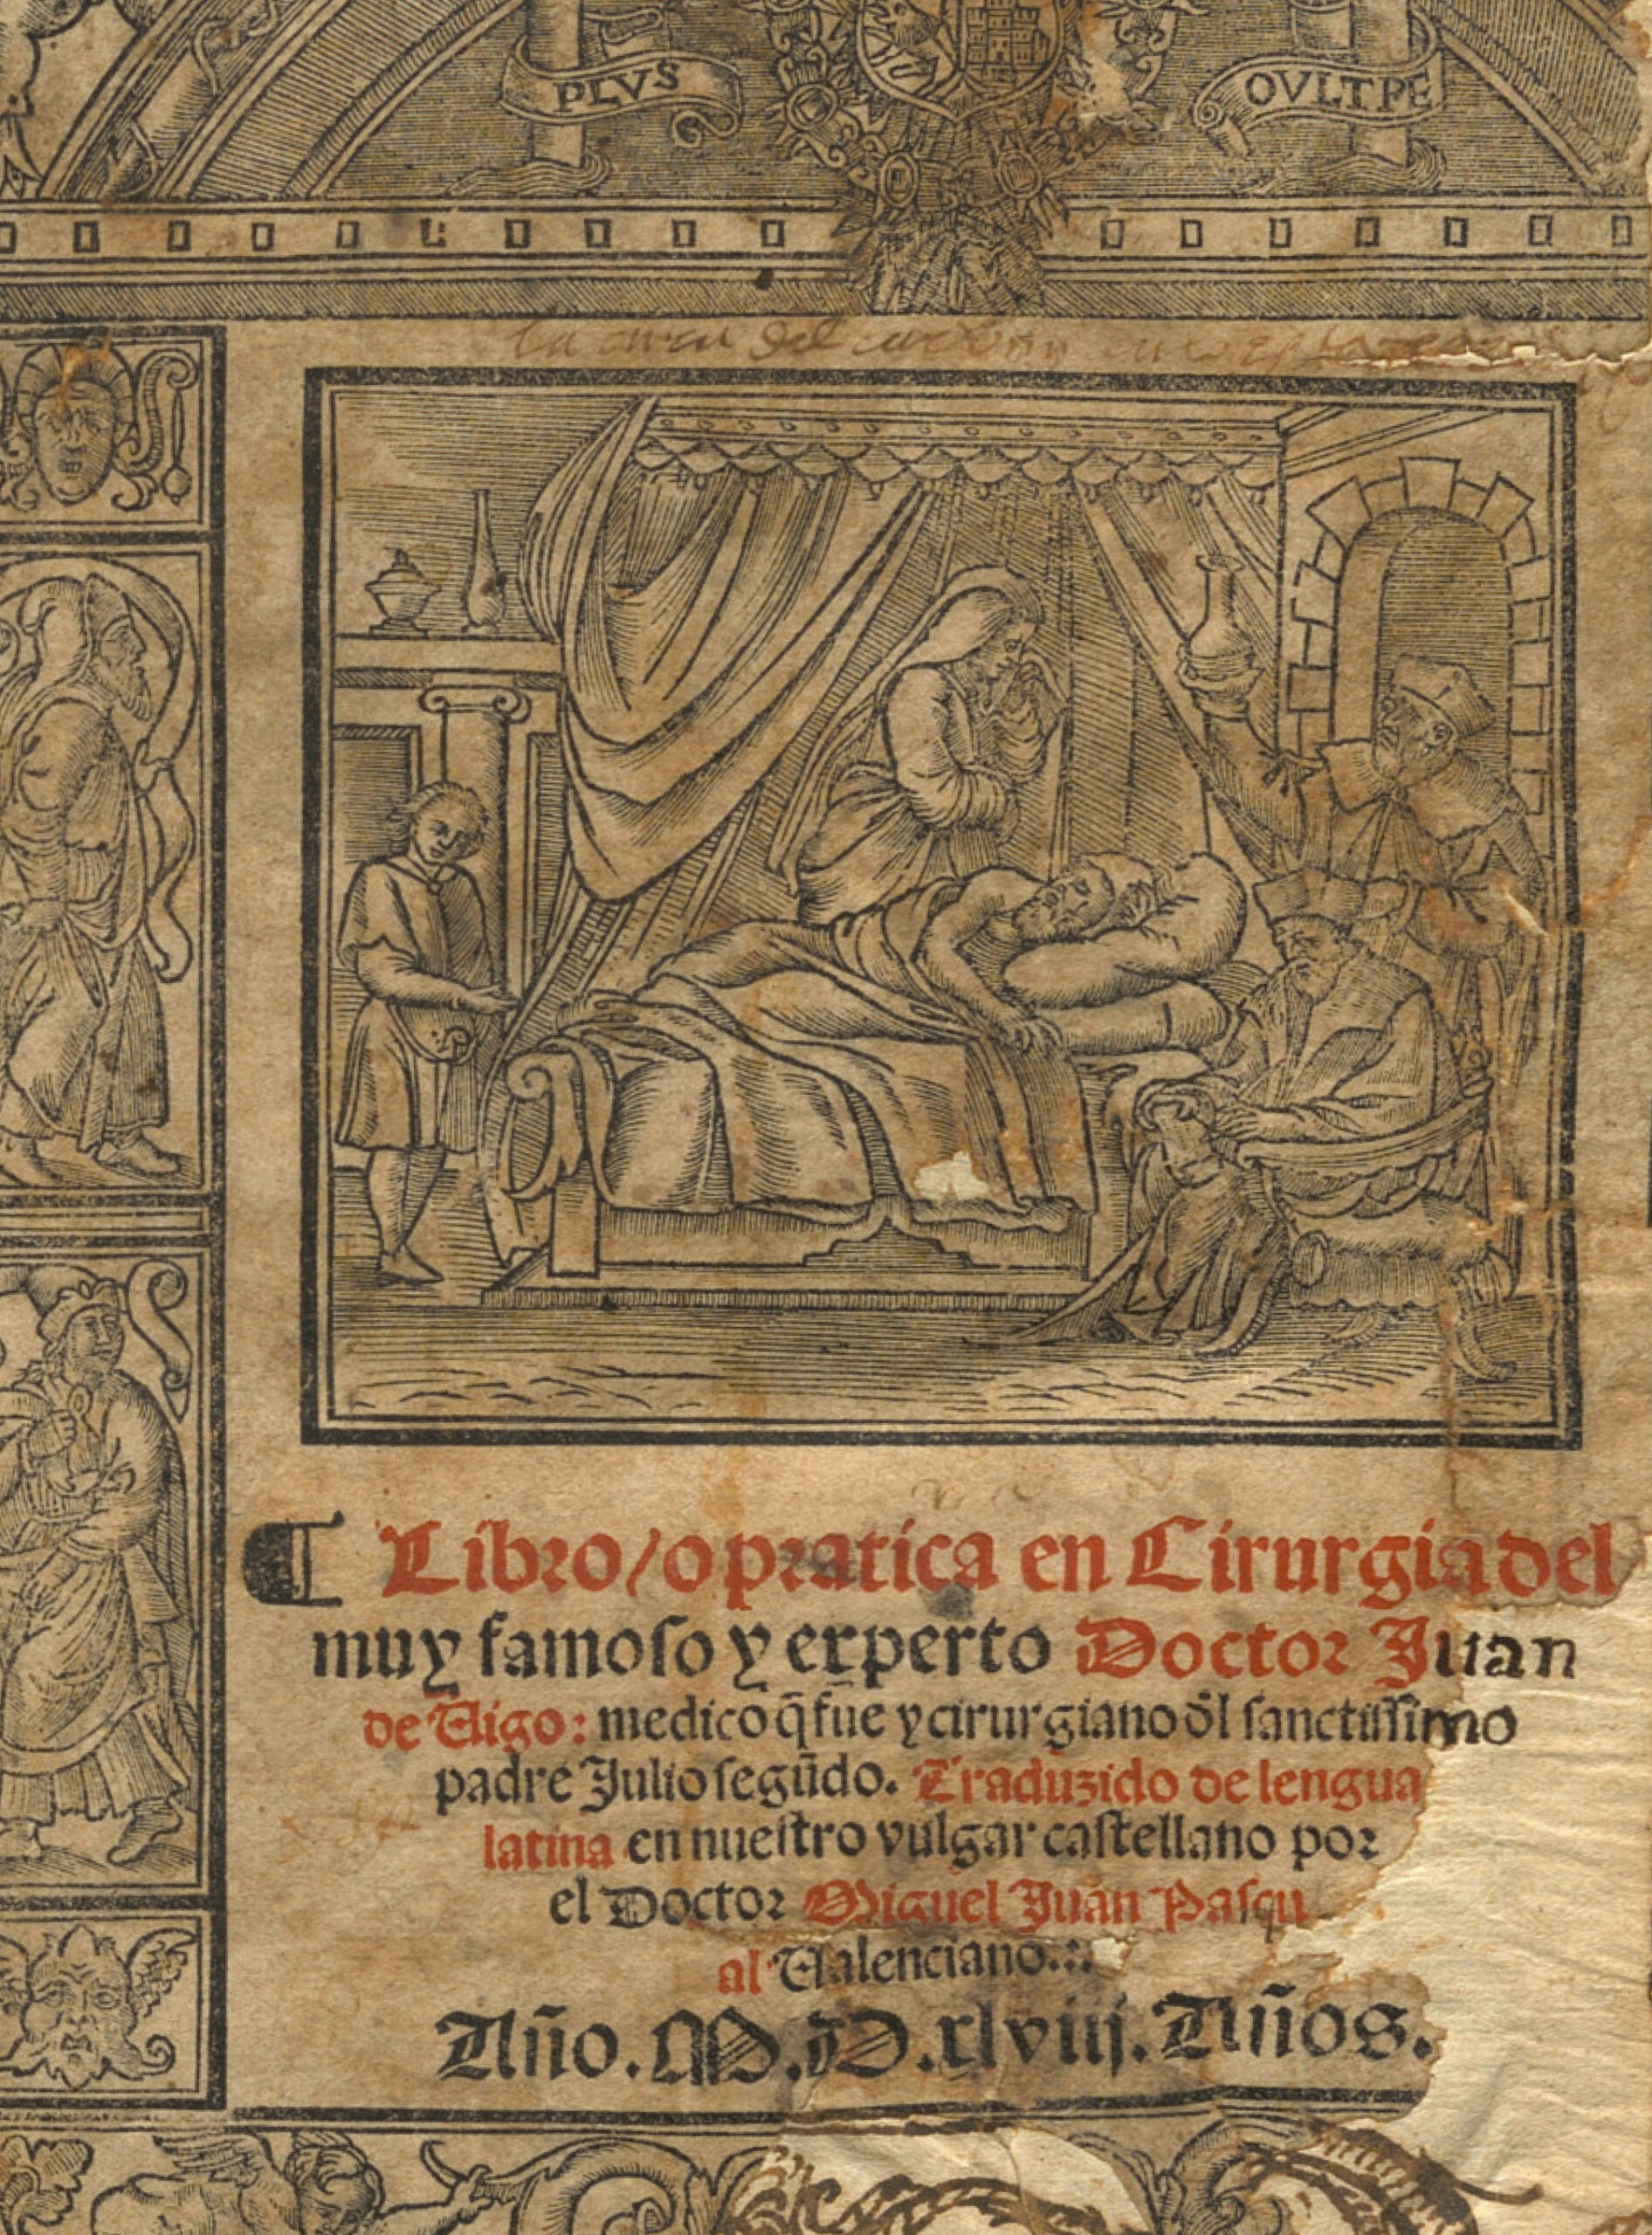 PLVS
OVLTRE
la cura del
¶ Libro/o pratica en Cirurgia del
muy famoſo y experto Doctor Juan
de Uigo: medico q̃ fue y cirurgiano ð̓l ſanctiſſimo
padre Julio ſegũdo. Traduzido de lengua
latina en nueſtro vulgar caſtellano por
el Doctor Miguel Juan Paſqu
al Ualenciano.:.
Año. M.D.xlviij. Años.